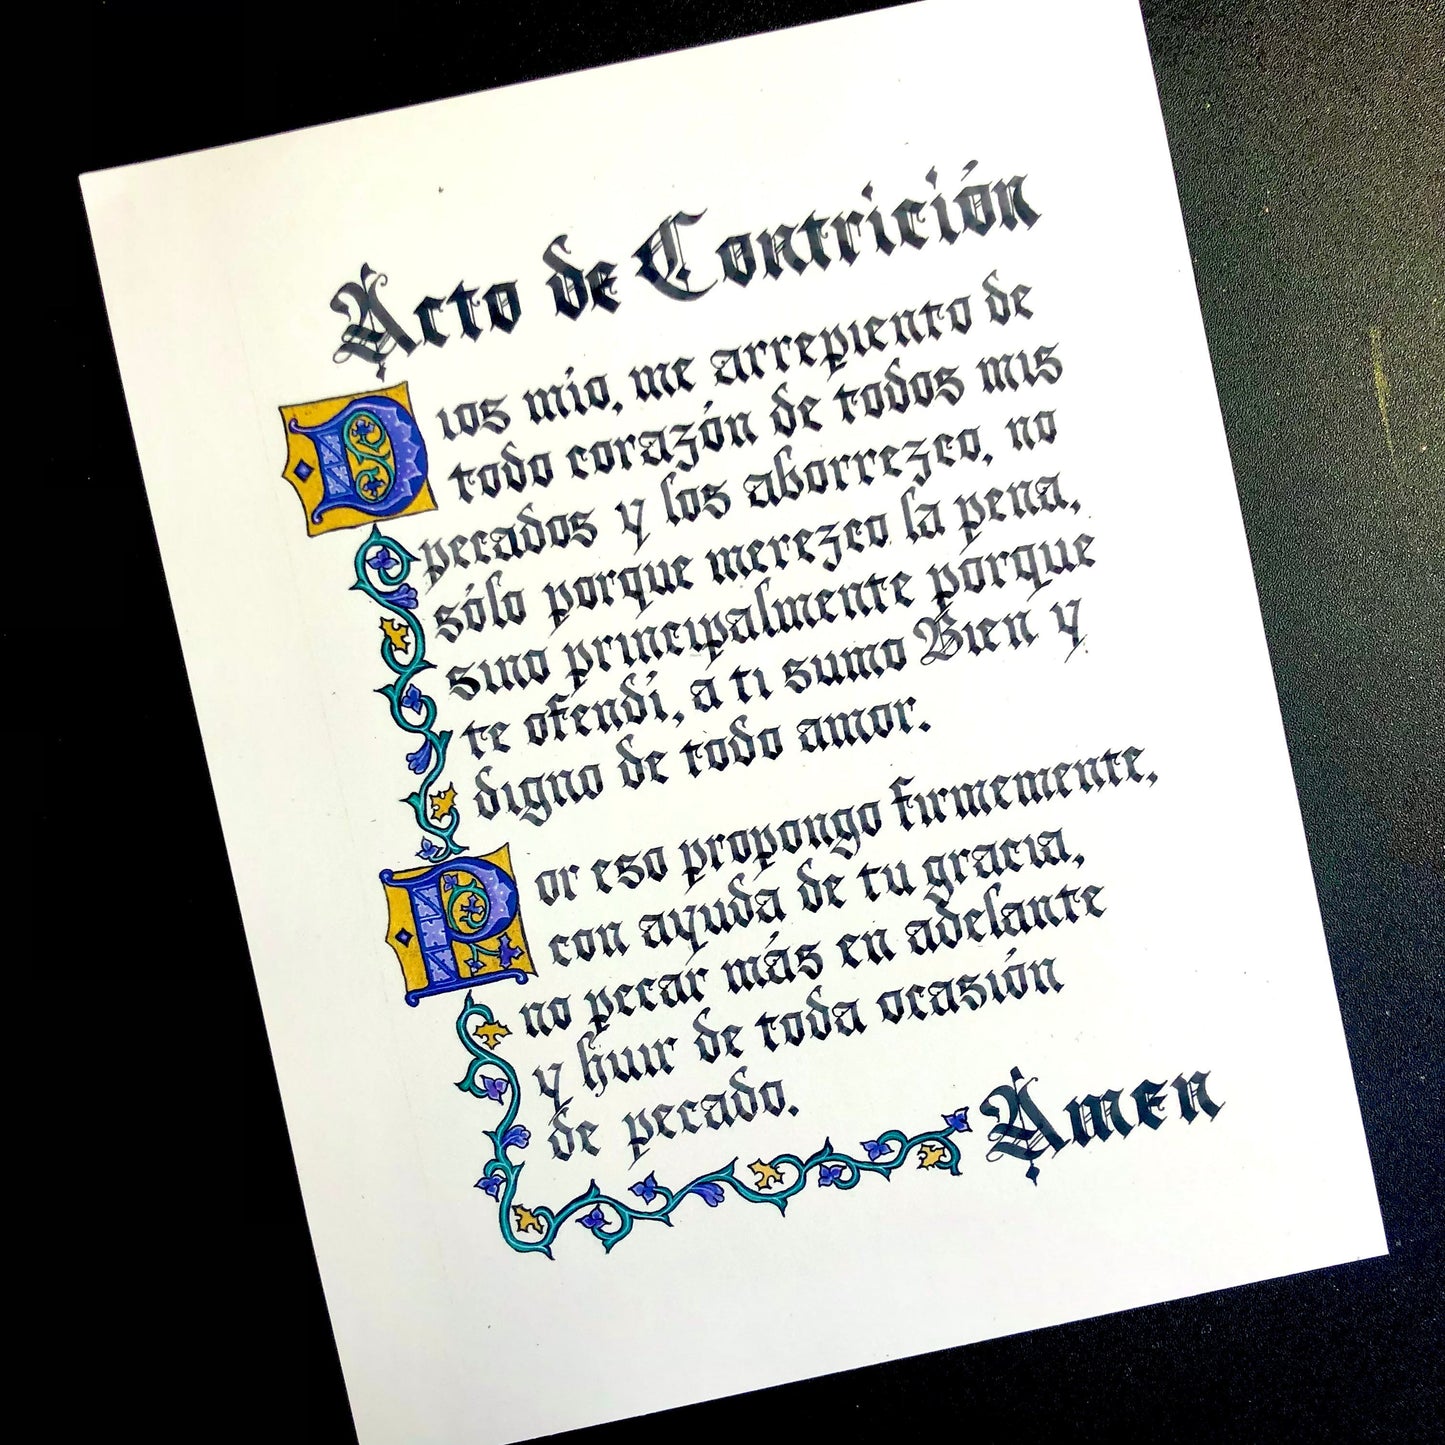 Acto de Contrición
Dios mío, me arrepiento de
todo corazón de todos mis
pecados y los aborrezco, no
sólo porque merezco la pena,
sino principalmente porque
te ofendí, a ti sumo Bien y
digno de todo amor.
Por eso propongo firmemente,
con ayuda de tu gracia,
no pecar más en adelante
y huir de toda ocasión
de pecado.
Amen